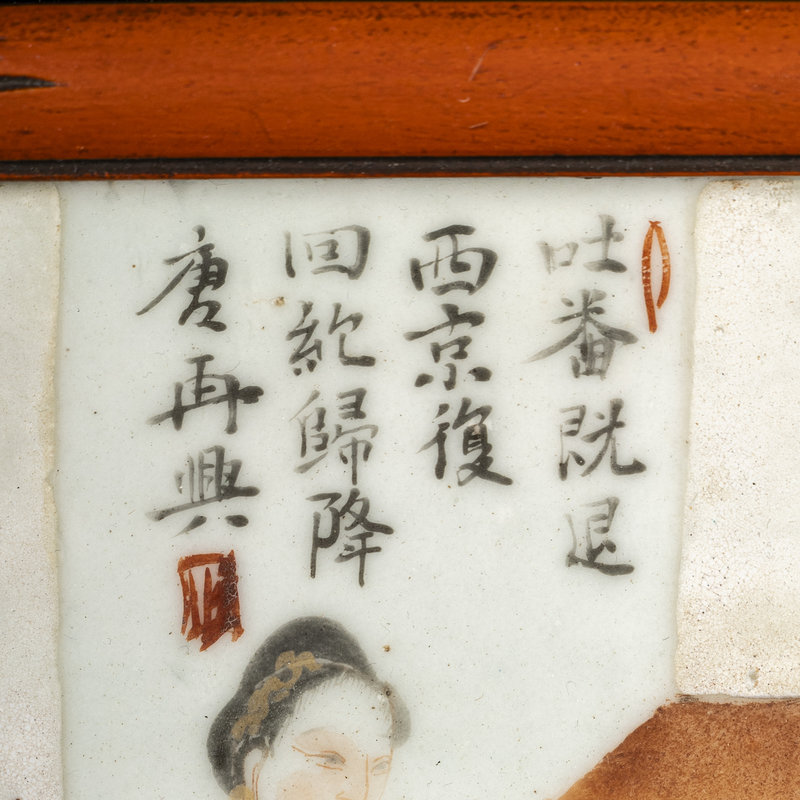 吐番既退
西京復
回紇歸降
唐再興